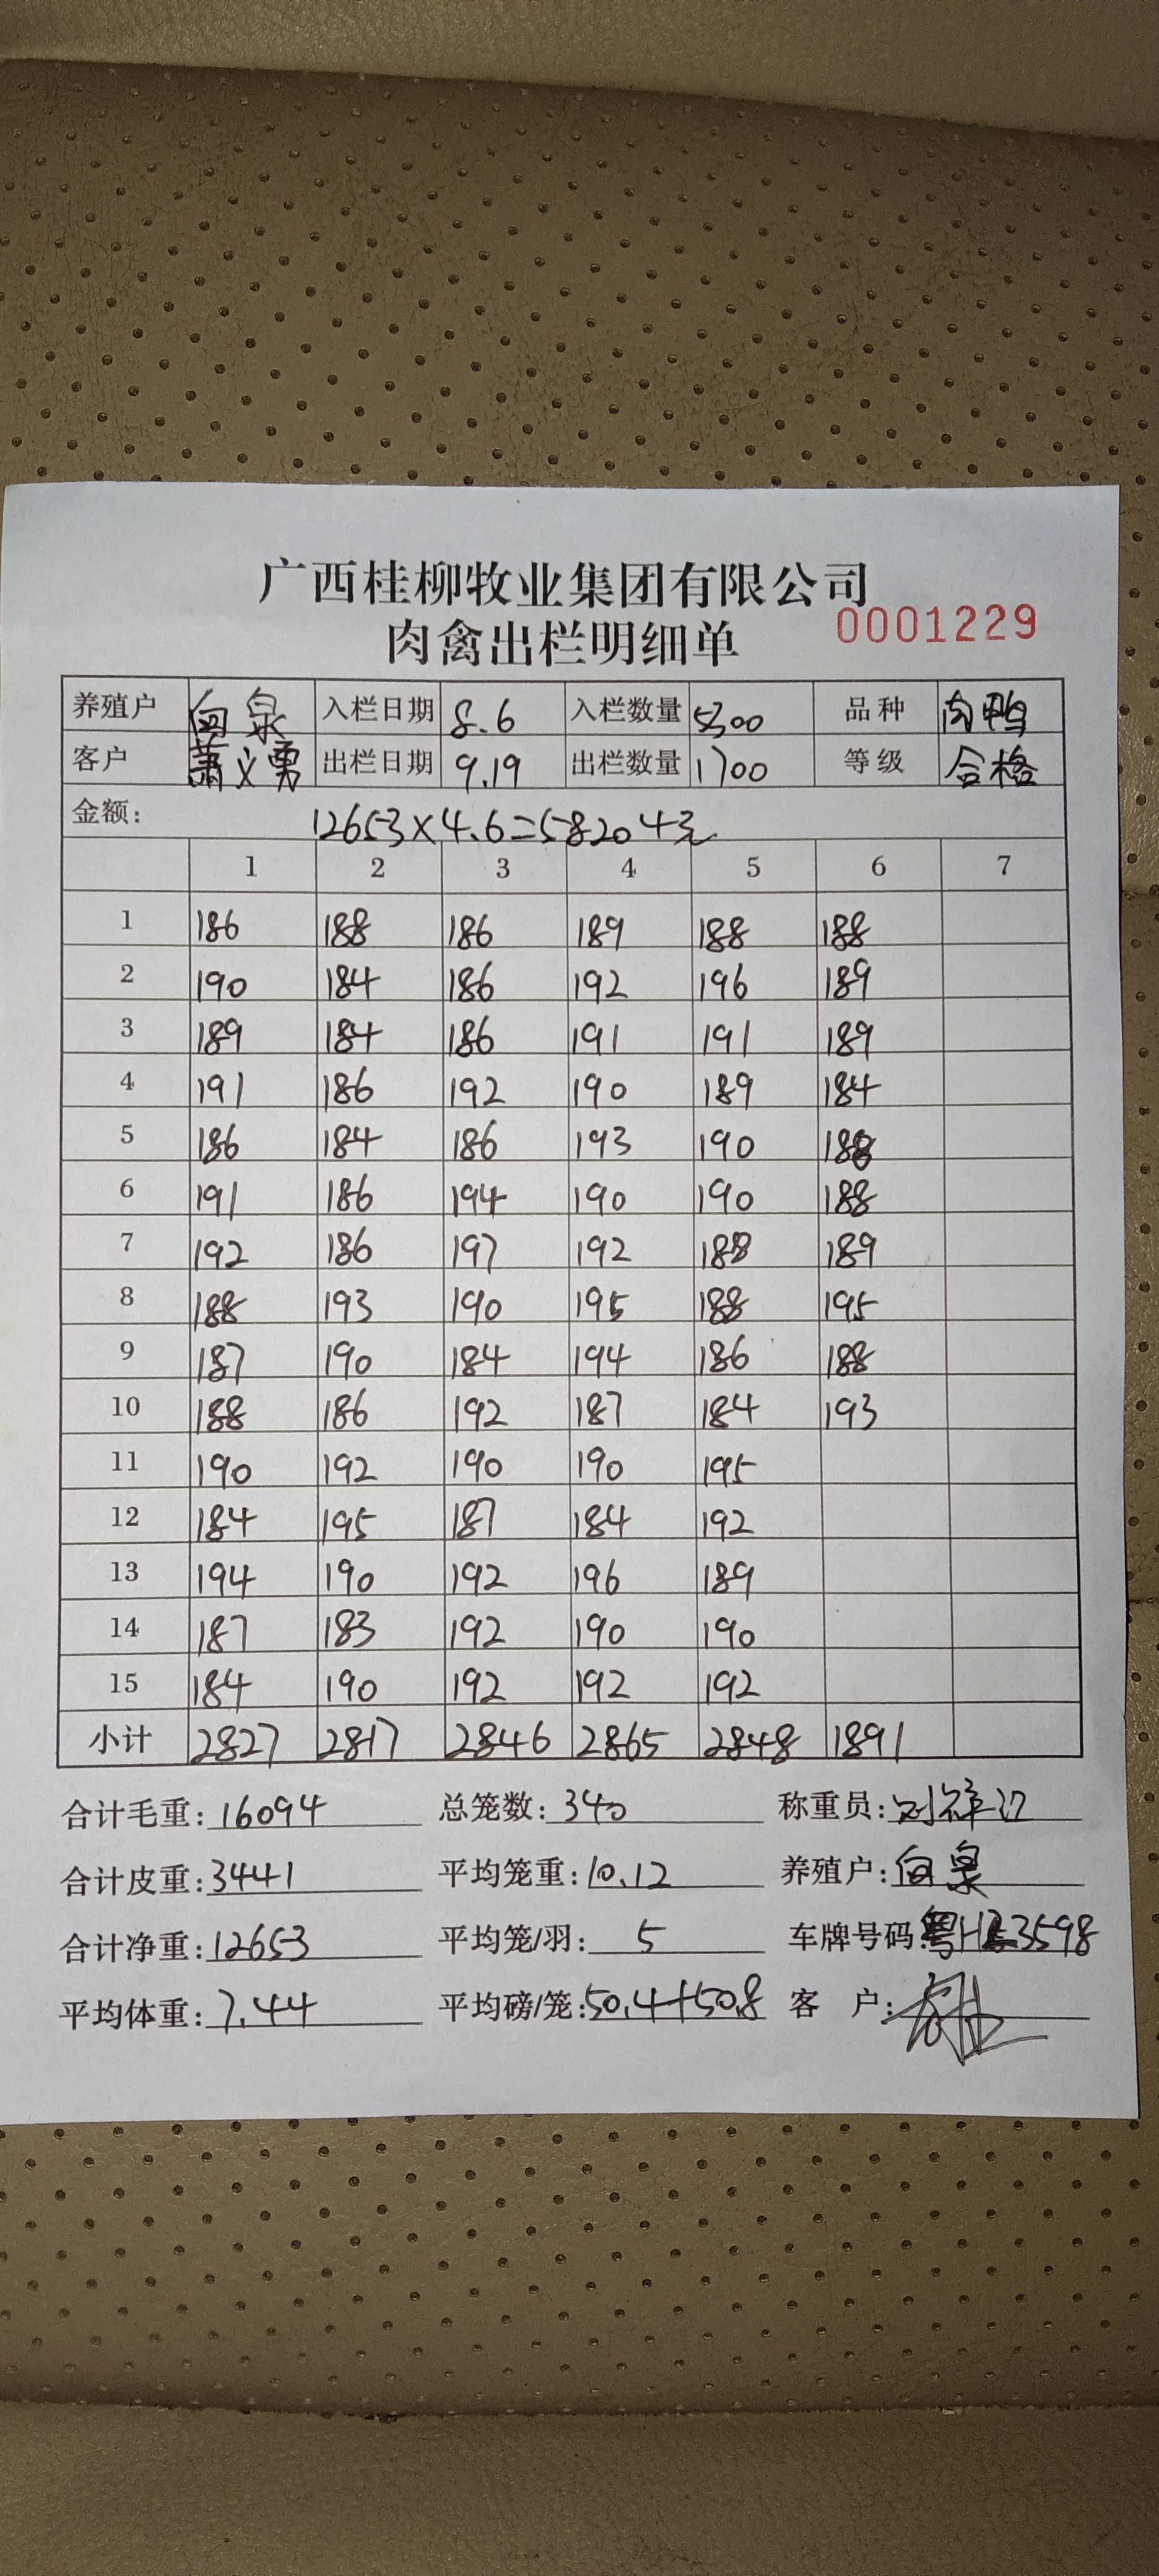 广西桂柳牧业集团有限公司
肉禽出栏明细单 0001229
养殖户 向泉 入栏日期 8.6 入栏数量 5300 品种 肉鸭
客户 萧义勇 出栏日期 9.19 出栏数量 1700 等级 合格
金额: 12653×4.6=58204元
1 2 3 4 5 6 7
1 186 188 186 189 188 188
2 190 184 186 192 196 189
3 189 184 186 191 191 189
4 191 186 192 190 189 184
5 186 184 186 193 190 188
6 191 186 194 190 190 188
7 192 186 197 192 188 189
8 188 193 190 195 188 195
9 187 190 184 194 186 188
10 188 186 192 187 184 193
11 190 192 190 190 195
12 184 195 187 184 192
13 194 190 192 196 189
14 187 183 192 190 190
15 184 190 192 192 192
小计 2827 2817 2846 2865 2848 1891
合计毛重: 16094 总笼数: 340 称重员:
合计皮重: 3441 平均笼重: 10.12 养殖户: 向泉
合计净重: 12653 平均笼/羽: 5 车牌号码:
平均体重: 7.44 平均磅/笼: 50.4+50.8 客 户: